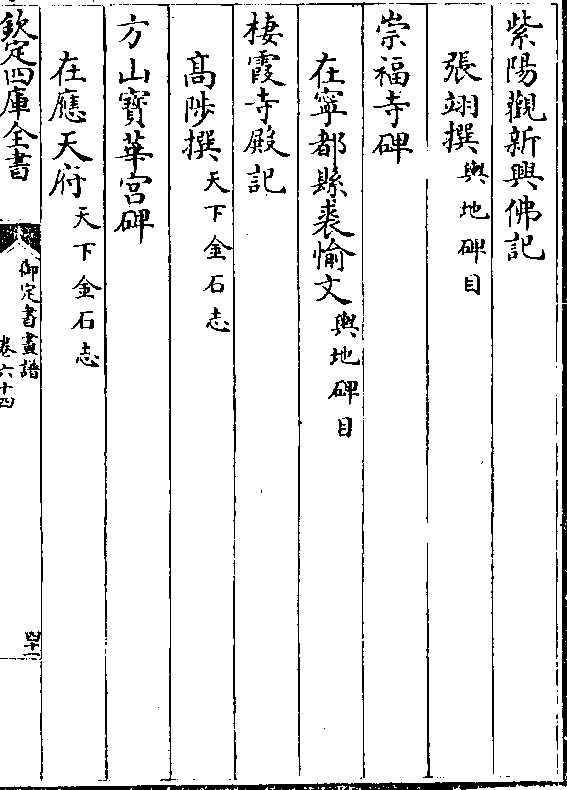 紫陽觀新興佛記
張翊撰輿地碑目
崇福寺碑
在寧都縣裘愉文輿地碑目
棲霞寺殿記
髙陟撰天下金石志
方山寳華宫碑
在應天府天下金石志
欽定四庫全書
御定書畫譜
卷六十四
四十一